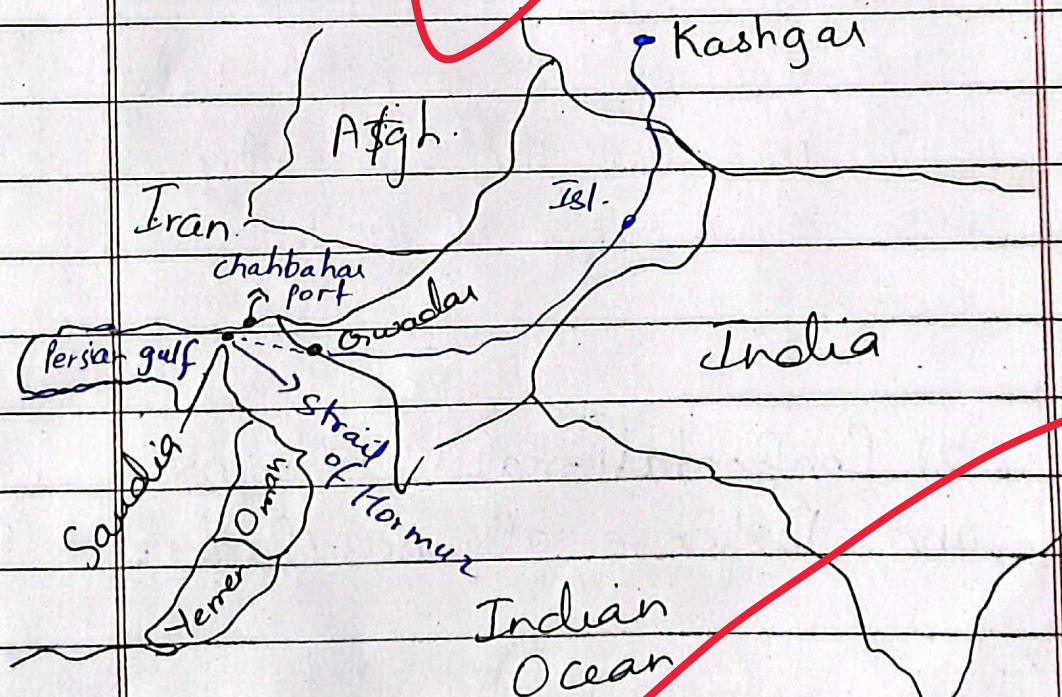 Kashgar
Afgh.
Isl.
Iran.
Chahbahar
port
Gwadar
India
Persian gulf
Strait
of Hormuz
Saudia
Oman
Yemen
Indian
Ocean